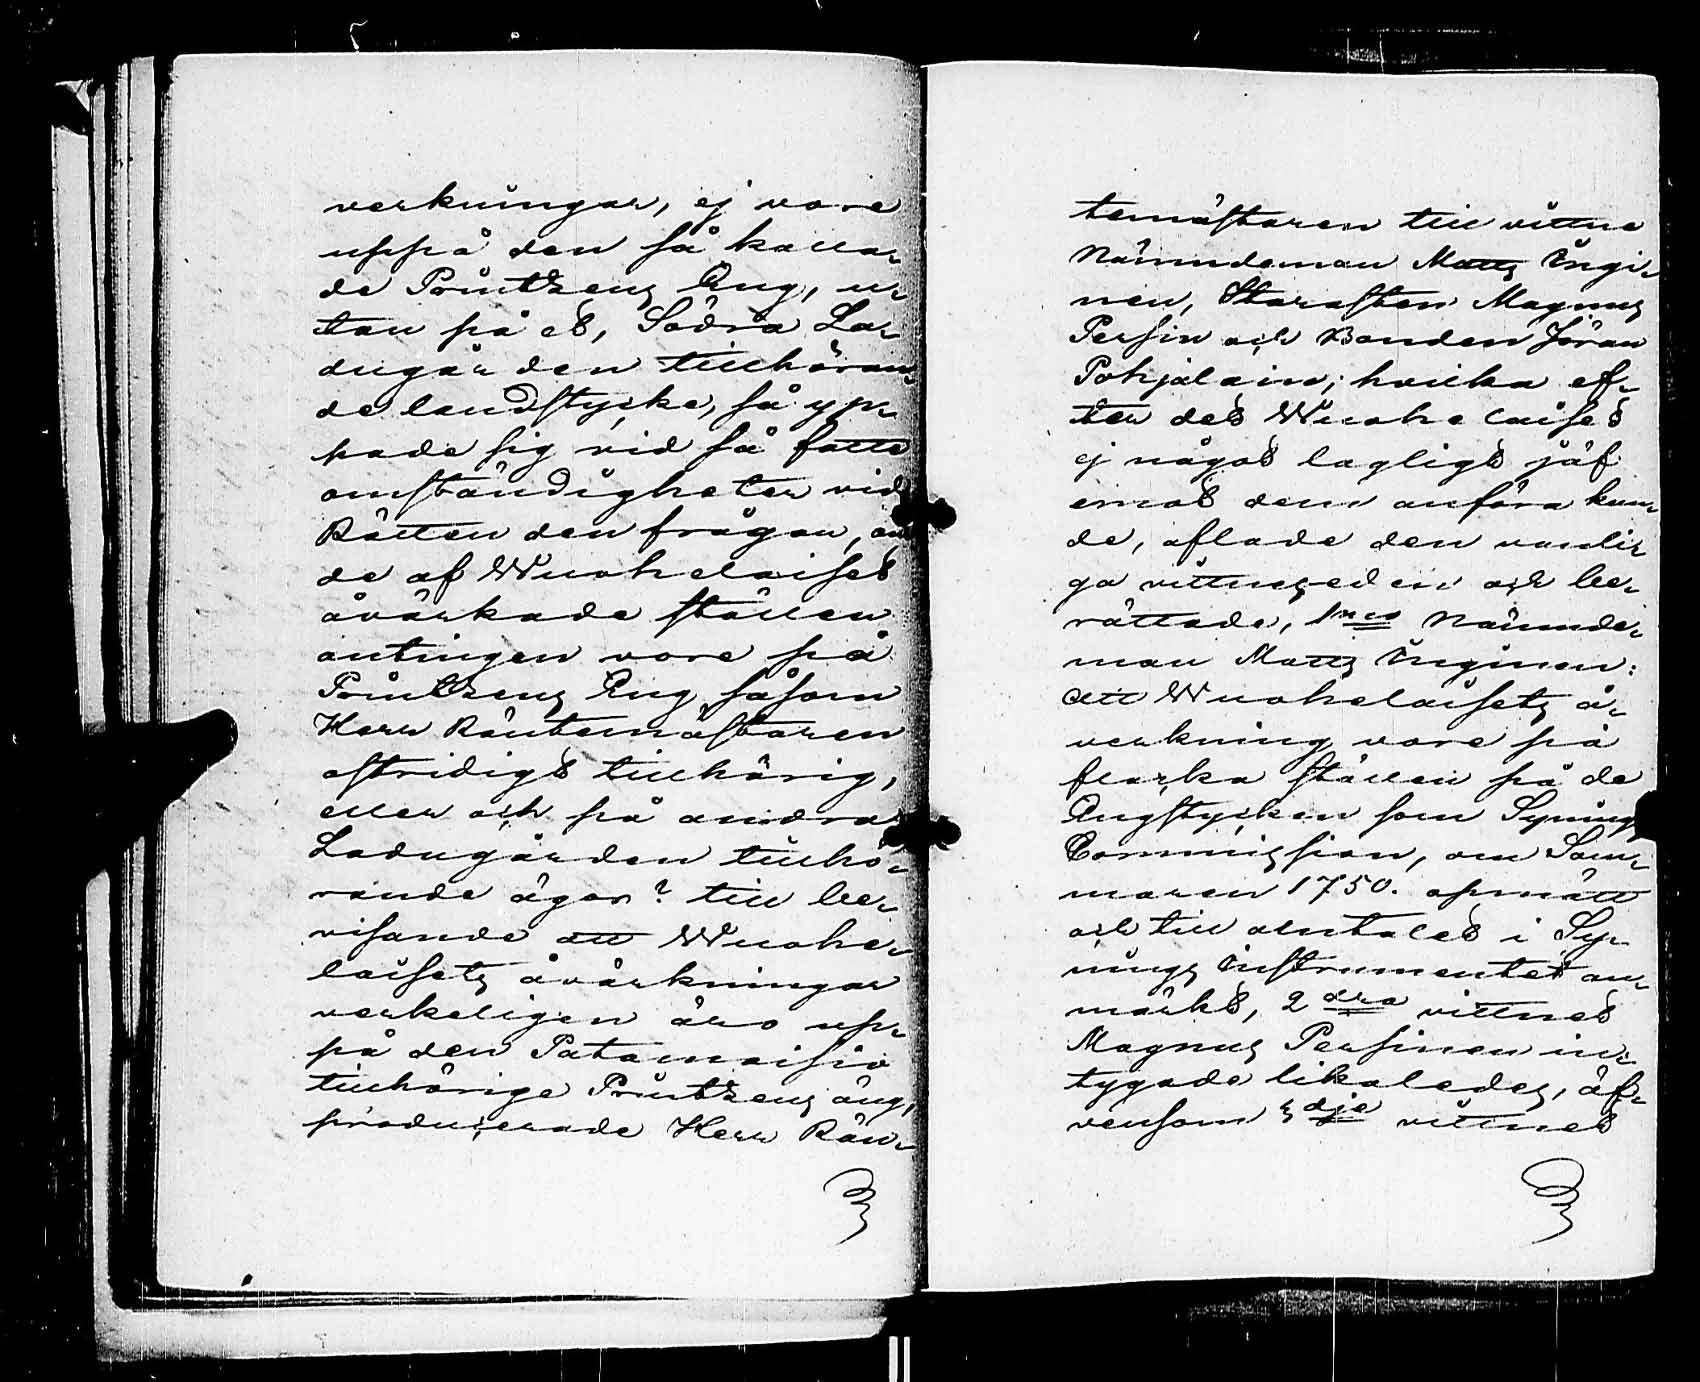 verkningar, ej vore
uppå den så kalla-
de Printzens Äng, u-
tan på et, Södra La-
dugården tillhöran-
de landstycke, så yp-
pade sig vid så fatte
omständigheter vid
Rätten den frågan, om
de af Wuohelaiset
åvärkade ställen
antingen vore på
Printzens Äng såsom
Herr Räntemästaren
ostridigt tillhörig,
eller och på andra
Ladugården tillhö-
rande ägor? till be-
visande att Wuohe-
laisets åvärkningar
verkeligen äro up-
på den Patamaisio
tillhörige Printzens äng,
producerade Herr Rän-
temästaren till vittne
Nämndeman Matts Ingi-
nen, Starasten Magnus
Persin och Bonden Jöran
Pohjalain; hvilka ef-
ter det Wuohelaiset
ej något lagligt jäf
emot dem anföra kun-
de, aflade den vanli-
ga vittneseden och be-
rättade, 1mo Nämnde-
man Matts Inginen:
Att Wuohelaisets å-
verkning vore på
flerka ställen på de
Ängstycken som Synings
Commission, om Som-
maren 1750. opmätt
och till antalet i Sy-
nings Instrumentet an-
märkt, 2dra vittnet
Magnus Persinen in-
tygade likaledes, äf-
vensom 3dje vittnet